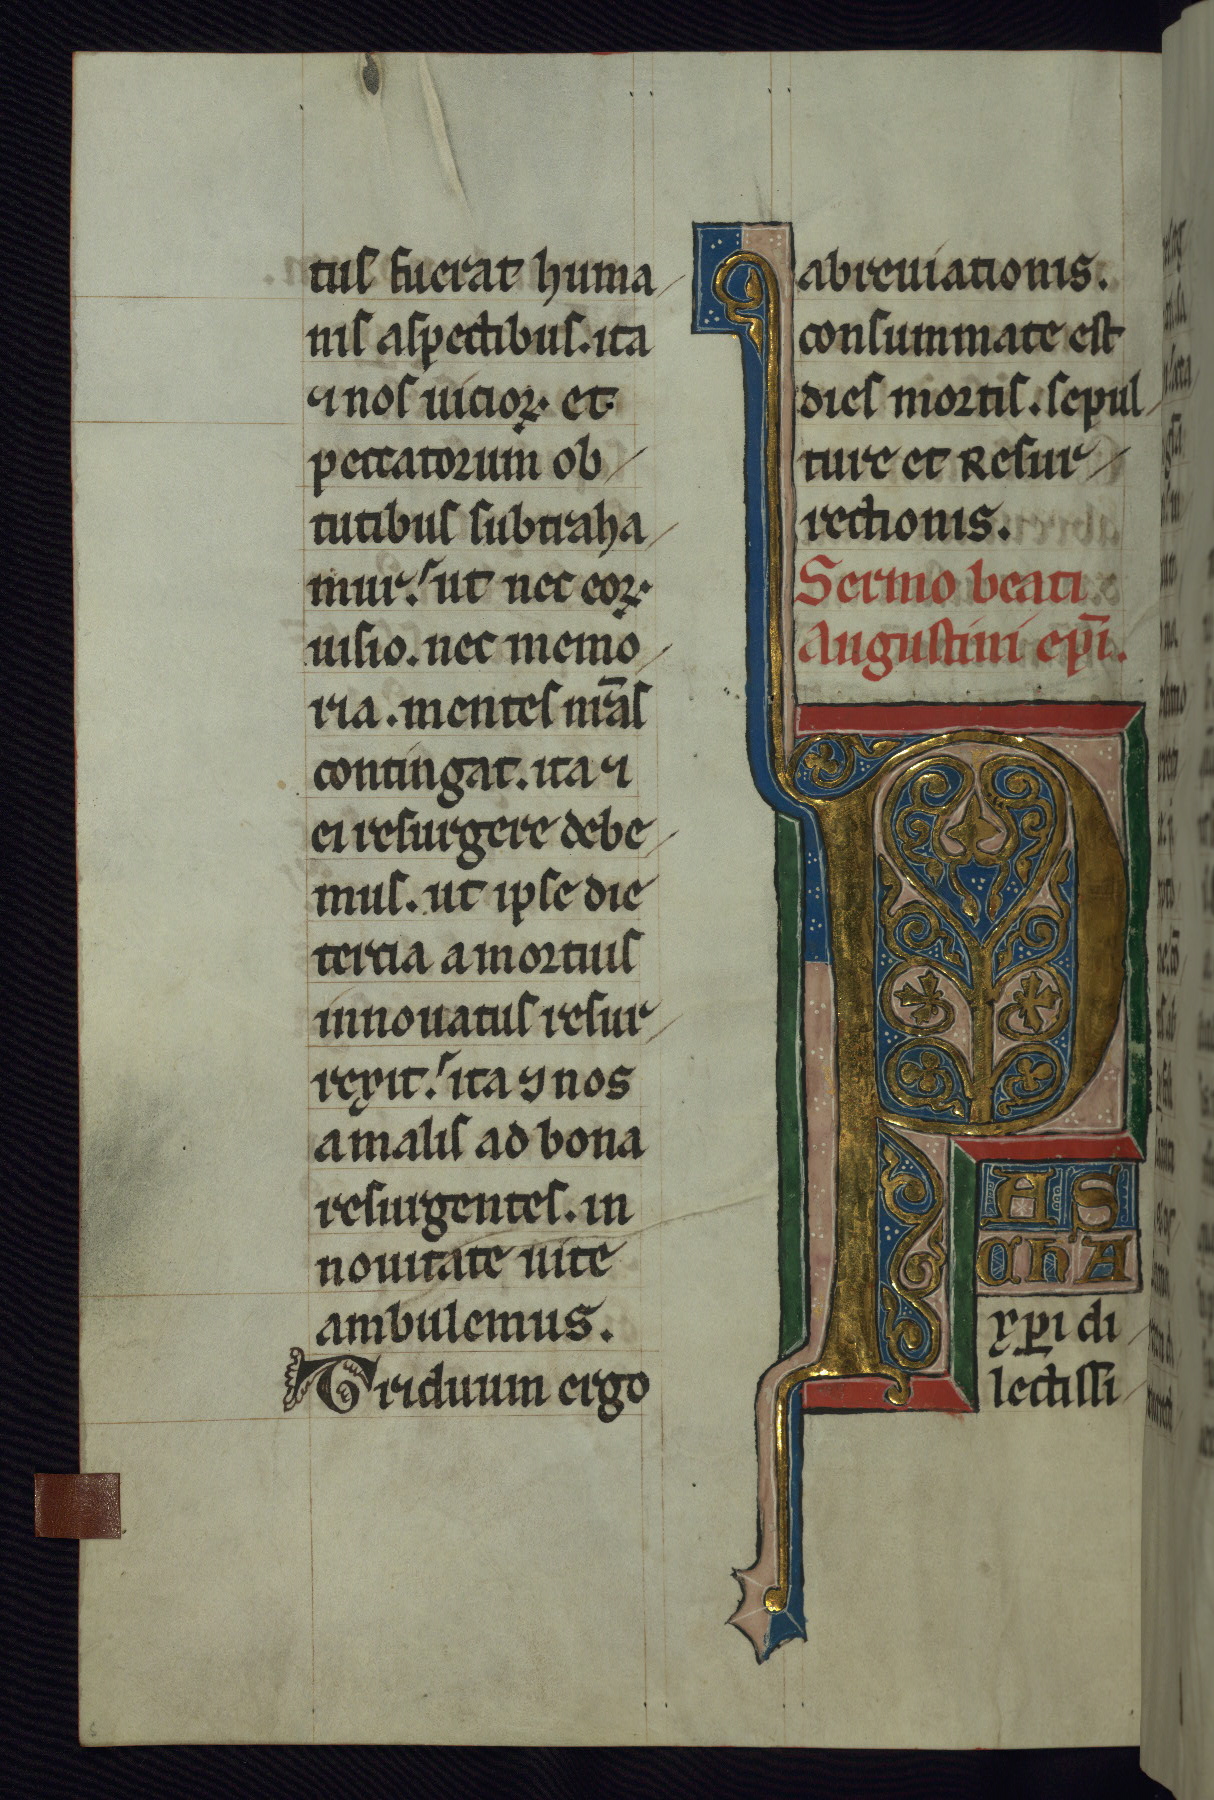 tus fuerat huma
nis aspectibus. ita
⁊ nos uicioꝝ. et
peccatorum ob
tutibus subtraha
mur. ut nec eoꝝ.
uisio. nec memo
ria. mentes nr̄as
contingat. ita ⁊
ei resurgere debe
mus. ut ipse die
tercia a mortuis
innouatus resur
rexit. ita ⁊ nos
a malis ad bona
resurgentes. in
nouitate uite
ambulemus.
Triduum ergo
abreuiationis.
consummate est
dies mortis. sepul
ture et Resur
rectionis.
Sermo beati
Augustini ep̄i.
PAS
CHA
xp̲i di
lectissi